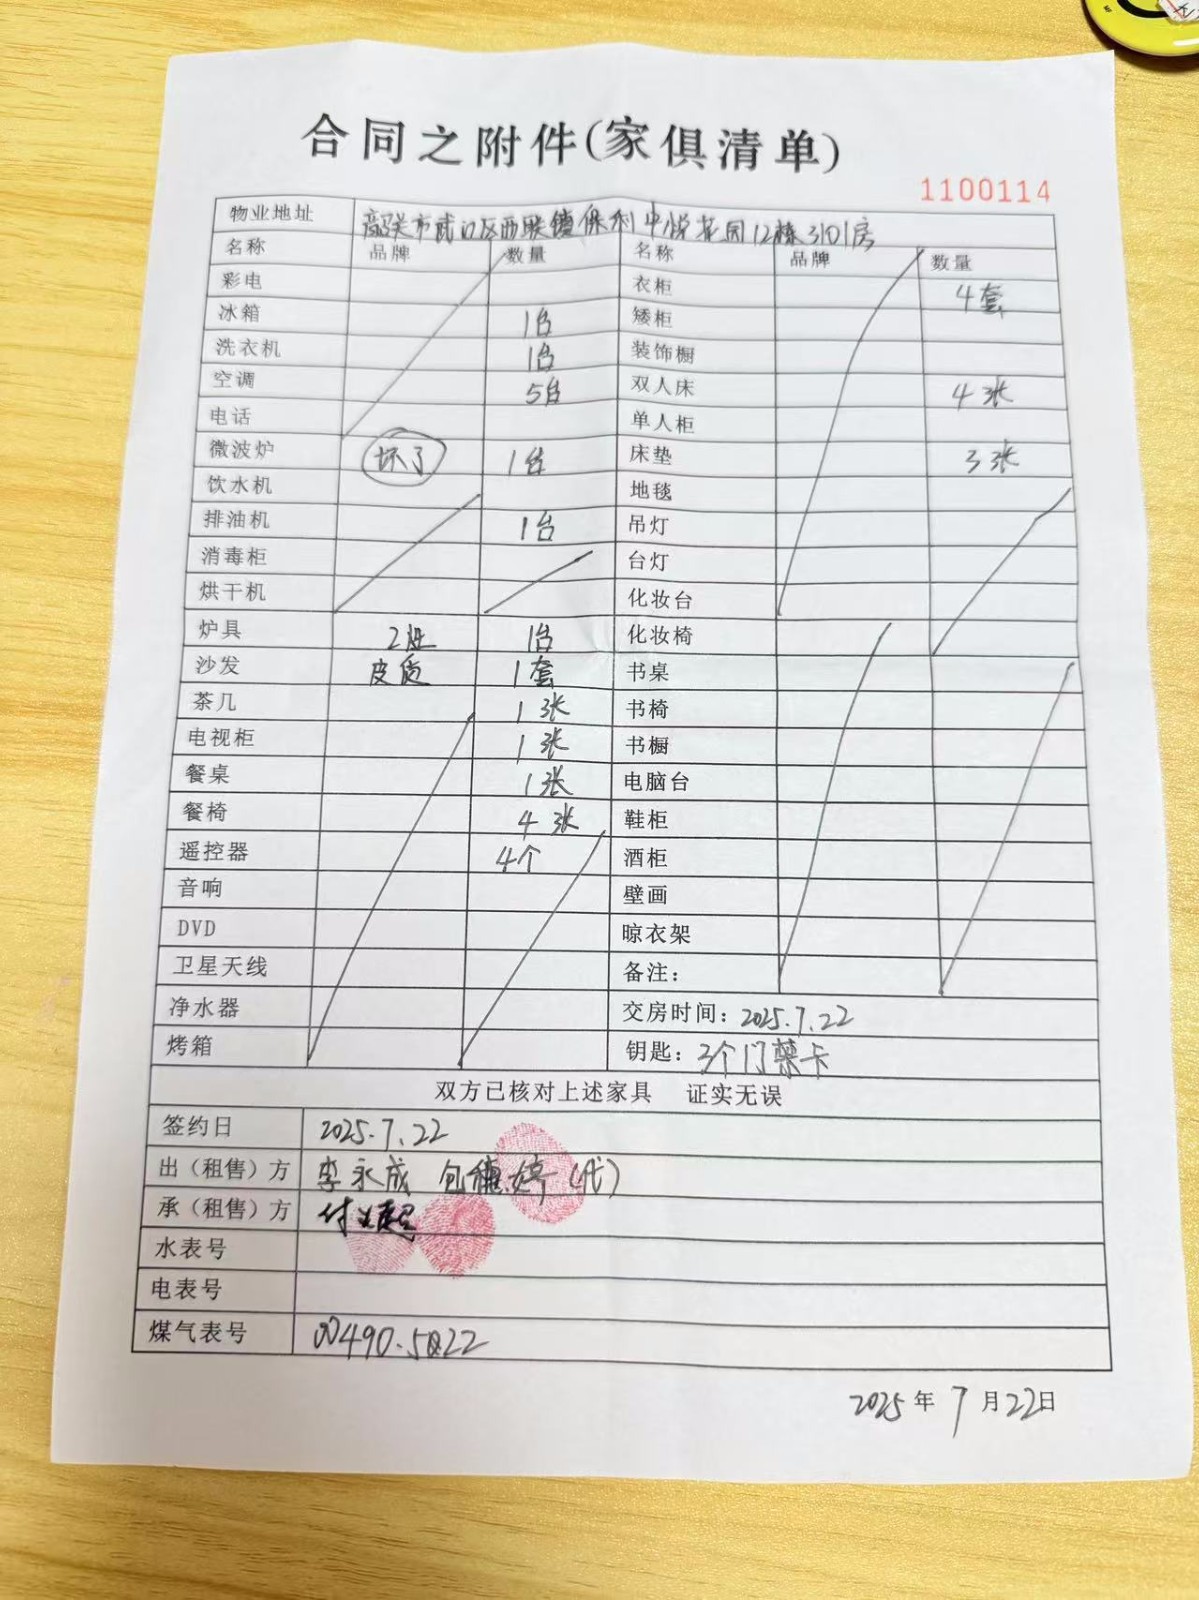 合同之附件(家俱清单)
1100114
物业地址 韶关市武江区西联镇保利中悦花园12栋3101房
名称 品牌 数量 名称 品牌 数量
彩电 衣柜 4套
冰箱 1台 矮柜
洗衣机 1台 装饰橱
空调 5台 双人床 4张
电话 单人柜
微波炉 坏了 1台 床垫 3张
饮水机 地毯
排油机 1台 吊灯
消毒柜 台灯
烘干机 化妆台
炉具 2灶 1台 化妆椅
沙发 皮质 1套 书桌
茶几 1张 书椅
电视柜 1张 书橱
餐桌 1张 电脑台
餐椅 4张 鞋柜
遥控器 4个 酒柜
音响 壁画
DVD 晾衣架
卫星天线 备注：
净水器 交房时间：2025.7.22
烤箱 钥匙：3个门禁卡
双方已核对上述家具 证实无误
签约日 2025.7.22
出（租售）方 李永成 包穗婷(代)
承（租售）方 付
水表号
电表号
煤气表号
2025年7月22日